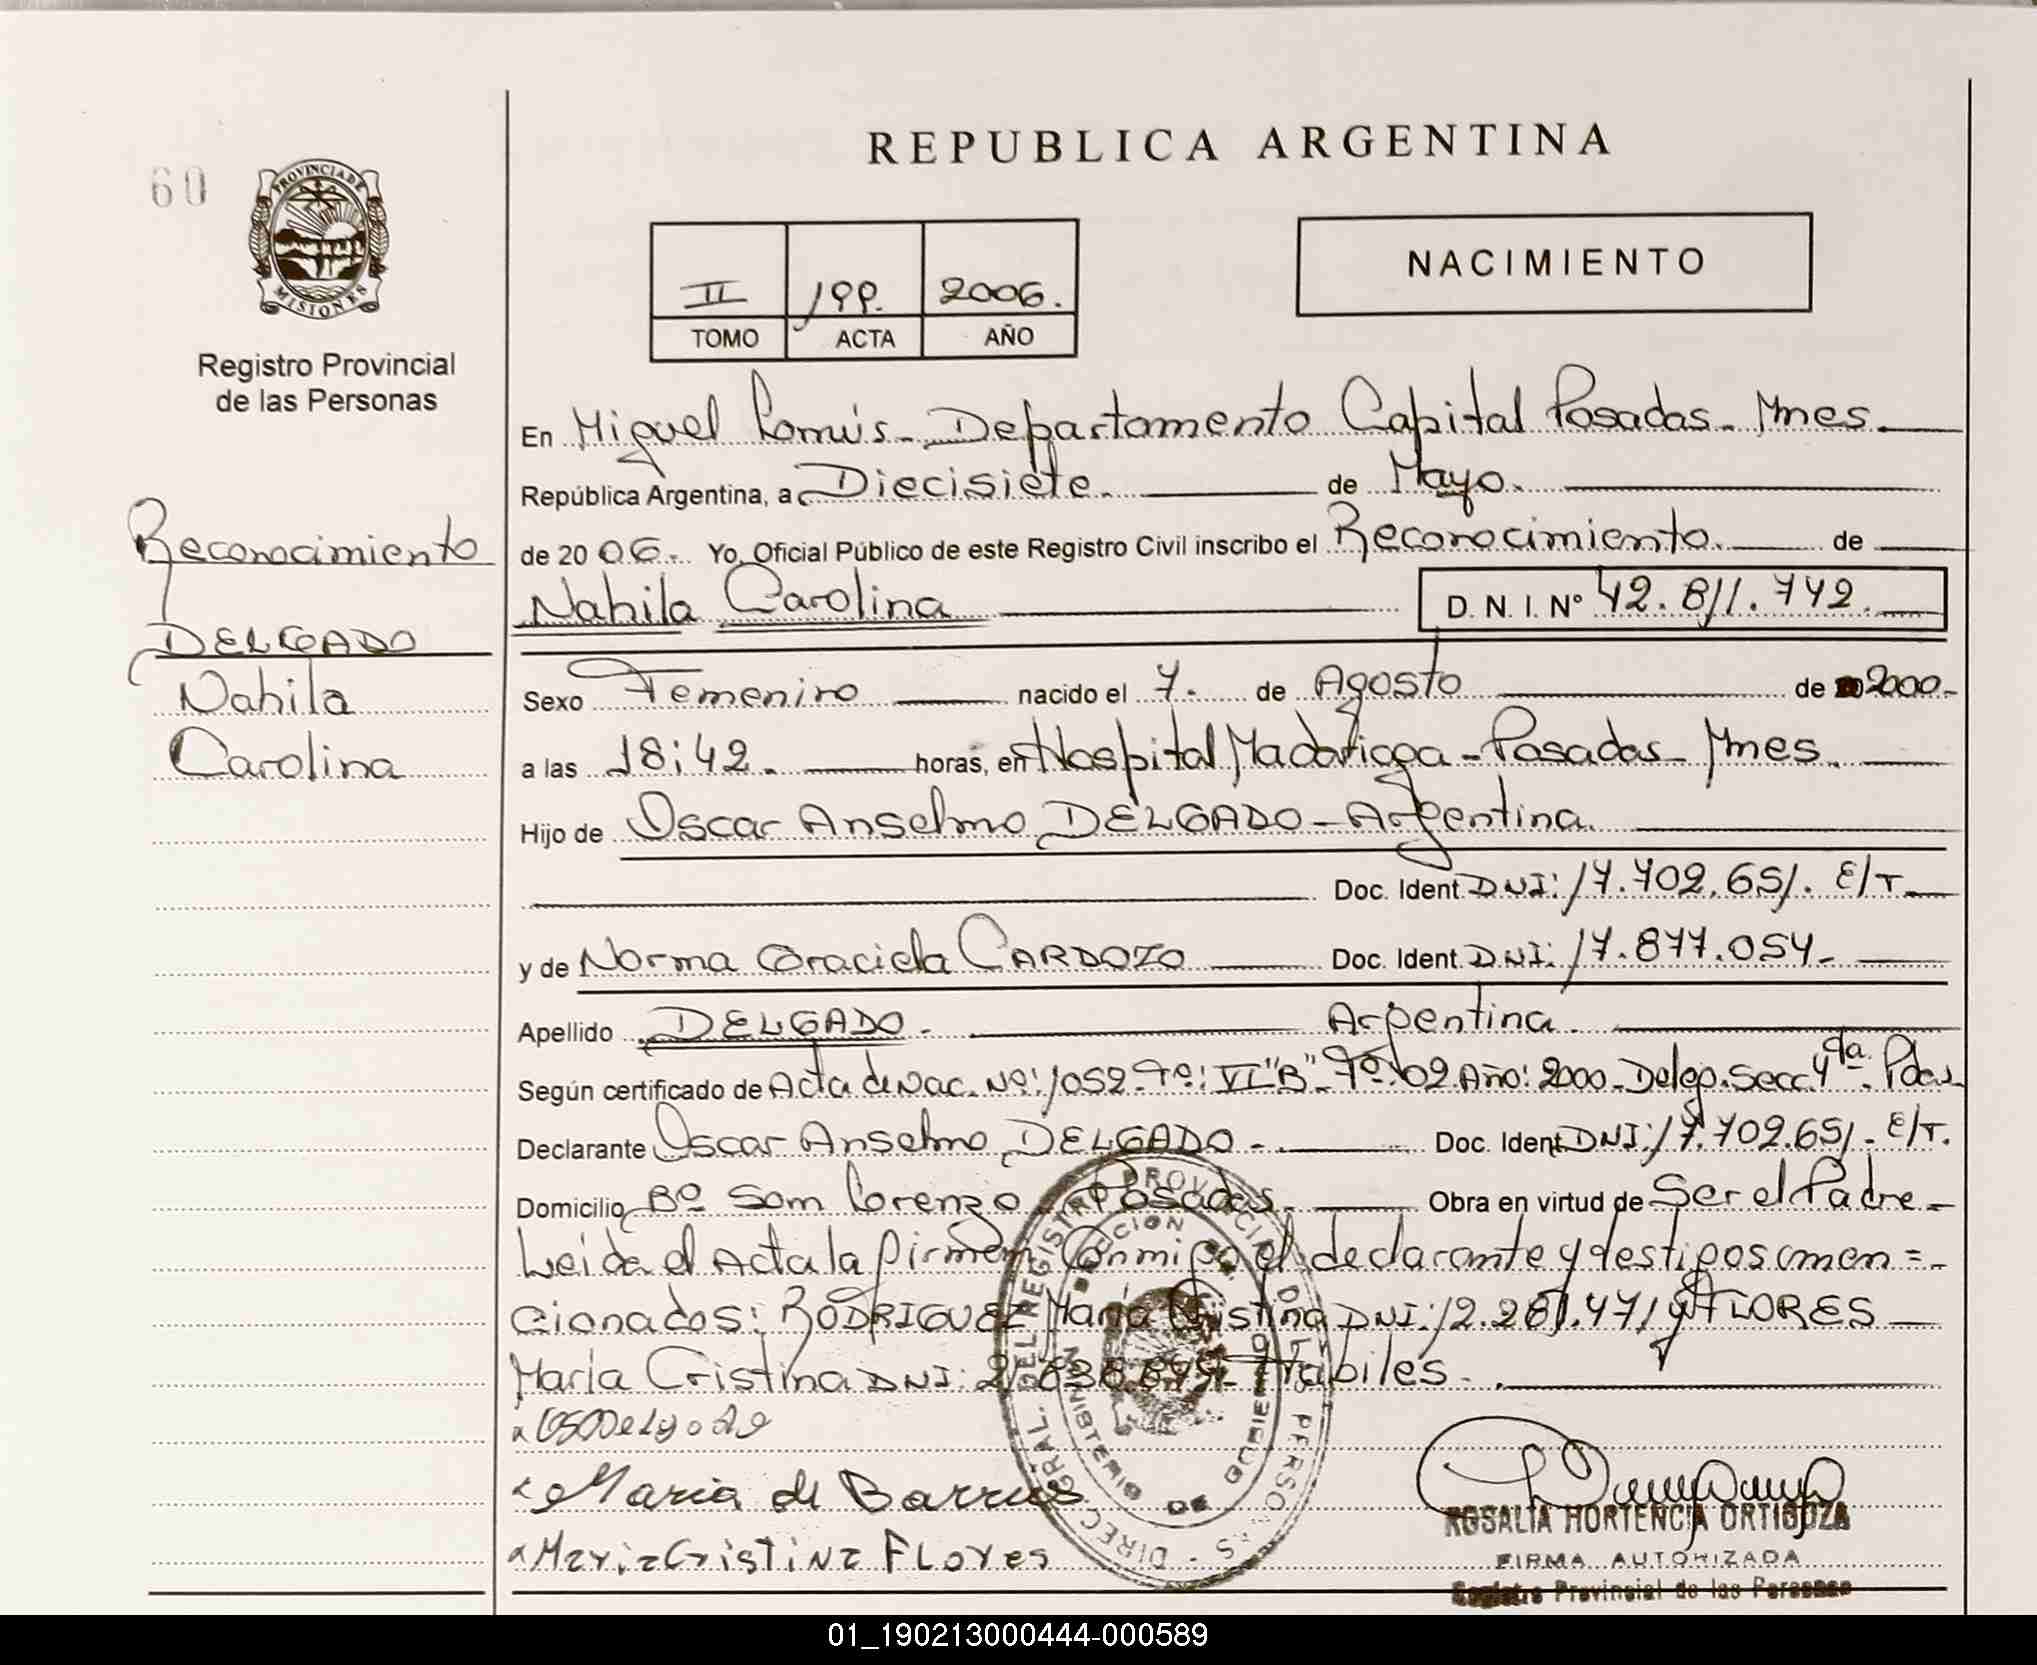 REPUBLICA ARGENTINA
60
PROVINCIA DE
MISIONES
Registro Provincial
de las Personas
II 199. 2006.
TOMO ACTA AÑO
NACIMIENTO
Reconocimiento
DELGADO
Nahila
Carolina
En Miguel Lanús - Departamento Capital Posadas - Mnes
República Argentina, a Diecisiete. de Mayo.
de 20 06. Yo, Oficial Público de este Registro Civil inscribo el Reconocimiento. de
Nahila Carolina D. N. I. Nº 42.811.742.
Sexo Femenino nacido el 7. de Agosto de 2000.
a las 18:42. horas, en Hospital Madariaga - Posadas - Mnes.
Hijo de Oscar Anselmo DELGADO - Argentina.
Doc. Ident. DNI: 17.702.651. E/T.
y de Norma Graciela CARDOZO Doc. Ident. DNI: 17.877.054.
Apellido DELGADO. Argentina.
Según certificado de Acta de Nac. Nº: 1052 Tº: VI "B" Fº: 02 Año: 2000 - Deleg. Secc 4ta. Pdas
Declarante Oscar Anselmo DELGADO. Doc. Ident. DNI: 17.702.651. E/T.
Domicilio Bº San Lorenzo Posadas. Obra en virtud de Ser el Padre
Leida el Acta la firman Conmigo el declarante y testigos men =
cionados: RODRIGUEZ María Cristina DNI: 12.281.471 y FLORES
María Cristina DNI: Habiles.
Maria de
Maria Cristina Flores
ROSALIA HORTENCIA ORTIGOZA
FIRMA AUTORIZADA
Registro Provincial de las Personas
DIREC. GRAL. DEL REGISTRO PROVINCIAL DE LAS PERSONAS
MINISTERIO DE GOBIERNO
01_190213000444-000589